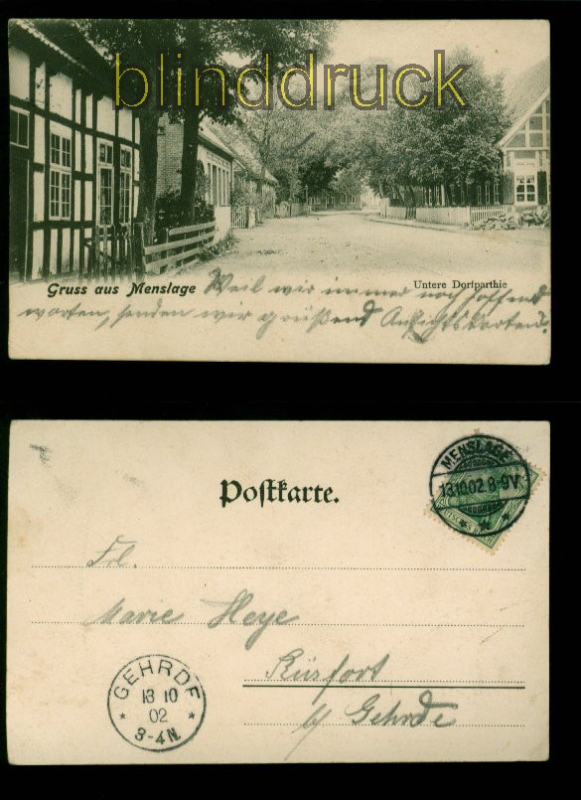 blinddruck
Gruss aus Menslage Weil wir immer noch hoffend
Untere Dorfparthie
warten, senden wir grüßend Ansichtskarten.
Postkarte.
MENSLAGE
13.10.02.8-9V
Frl.
Marie Heye
b/ Gehrde
GEHRDE
13 10
02
3-4N.